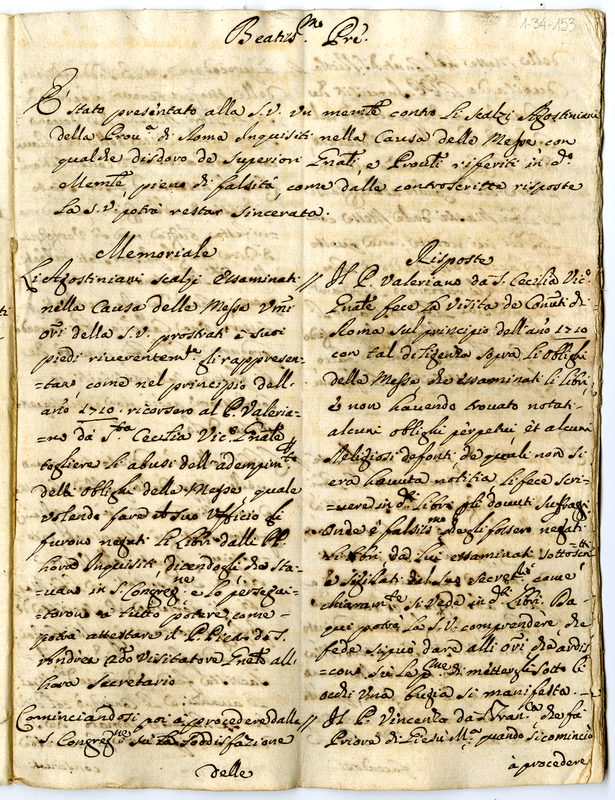 1-34-153
Beatis.mo Pre.
È stato presentato alla S.V. un memle contro Li scalzi Agostiniani
della Prov.a di Roma Inquisiti nella Causa delle Messe con
qualche disdoro de Superiori Gnali, e Procuti riferiti in d.o
Memle, pieno di falsità, come dalle controscritte risposte
La S.V. potrà restar sincerata.
Memoriale
Li Agostiniani scalzi Essaminati
nella Causa delle Messe Umi
ori della S.V. prostrati à suoi
piedi riverentem.te gli rappresen-
=tan, come nel principio dell'
año 1710. ricorsero al P. Valeria-
=no da S.ta Cecilia Vic.o Gnale
togliere li abusi dell'adempim.to
delli oblighi delle Messe, quale
volendo fare il suo Ufficio gli
furono negati li Libri dalli PP.
hora Inquisiti, dicendogli che sta-
=vano in S. Congreg.ne e lo persegui-
=torono à tutto potere come
potrà attestare il P. Pietro da S.
Andrea ado Visitatore Gnale all'
hora Secretario
Cominciandosi poi à procedere dalla
S. Congreg.ne sù la sodisfazione
delle
Risposte
// Il P. Valeriano da S. Cecilia Vic.o
Gnale fece La Visita de Conuti di
Roma sul principio dell'año 1710
con tal diligenza sopra li oblighi
delle Messe, che essaminati li Libri,
e non havendo trovato notati
alcuni oblighi perpetui, et alcuni
Religiosi defonti, de quali non si
era havuta notitia li fece scri-
=vere in d.i Libri gli dovuti suffragi
Onde è falsis.mo che gli fossero negati
li libri da Lui essaminati sottoscri-
=tti e sigillati dal suo secret.o, come
chiaram.te si vede in d.i Libri. Da
qui potrà La S.V. comprendere, che
fede si può dare alli ori che ardis-
=cono sù le p.me di mettergli sotto li
occhi una bugia sì manifesta.
// Il P. Vincenzo da S. Fran.co, che fù
Priore di Giesù M.a quando si cominciò
à procedere